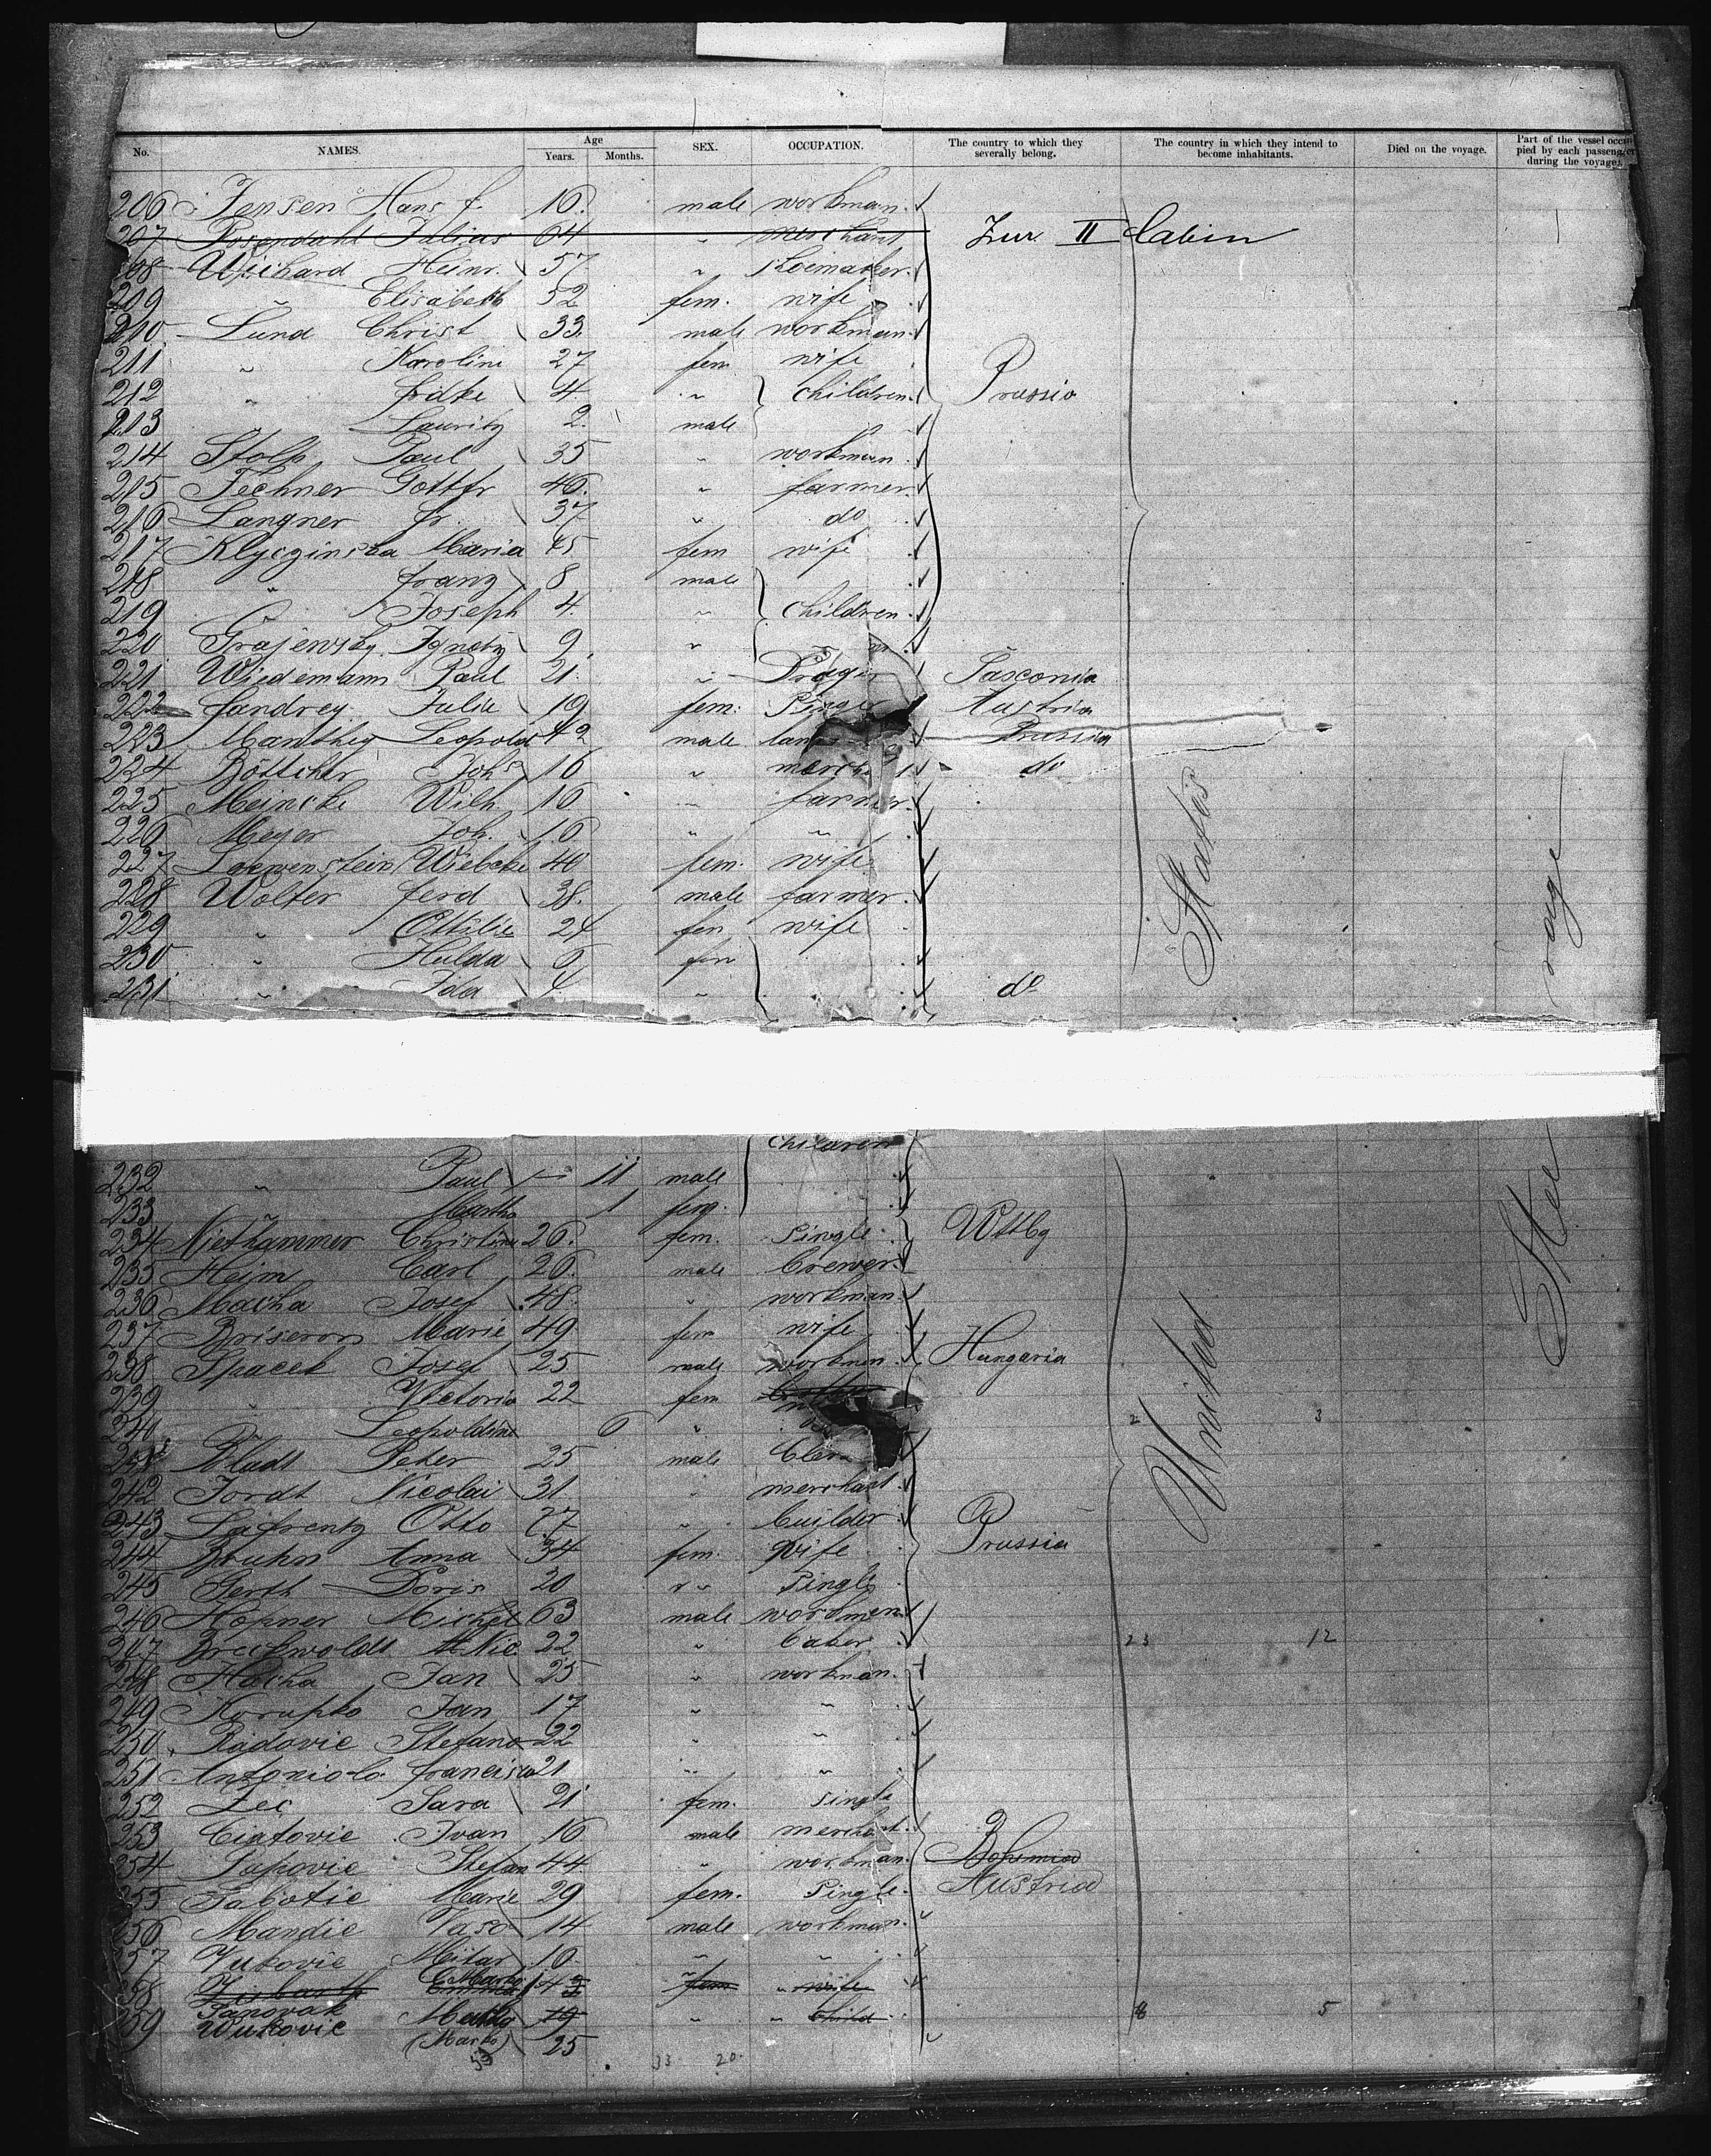 No. NAMES. Age Years. Months. SEX. OCCUPATION. The country to which they severally belong. The country in which they intend to become inhabitants. Died on the voyage. Part of the vessel occupied by each passenger during the voyage.
206 Jensen Hans f. 16. male workman.
207 Rosendahl Julius 64 " merchant Zur II Cabin
208 Wichard Heinr. 57 " shoemaker.
209 " Elisabeth 52 fem. wife
210 Lund Christ 33. male workman.
211 " Karoline 27 fem wife
212 " 4. " children. Prussia
213 " Lauritz 2. male
214 Stolp Paul 35 " workman.
215 Fechner Gottfr 46. " farmer.
216 Langner fr. 37 " do
217 Klyczinska Maria 45 fem wife
218 " franz 8 male
219 " Joseph 4. " children.
220 Grajewsky Ignatz 9. "
221 Wiedemann Paul 21. " Saxonia
222 fandrey Julie 19 fem. Singer Austria
223 Manthey Leopold 42 male Prussia
224 Böttcher Johs 16 " do
225 Meincke Wilh. 16 " farmer.
226 Meyer Joh. 16 " "
227 Loewenstein Wiebcke 40 fem. wife
228 Wolter ferd 38. male farmer.
229 " Ottilie 24 fem wife
230 " Hulda 6 fem
231 " Ida 4 " do
children
232 " Paul 11 male
233 " Martha 1 fem.
234 Niethammer Christine 26. fem. Single Wttbg
235 Heim Carl 26. male brewer.
236 Macha Josef 48. " workman.
237 Marie 49 fem wife
238 Spacek Josef 25 male workman. Hungaria
239 " Victoria 22 fem
240 " Leopoldine 6 " 2 3
241 Bladt Peter 25 male Clerk
242 Jordt Nicolai 31 " merchant.
243 Lafrentz Otto 27 " builder.
244 Bruhn Anna 34 fem. Wife Prussia
245 Gerth Doris 20 " Single
246 Hopner Michel 63 male workmen.
247 Breckwoldt Nic. 22 " baker 23 12
248 Hacha Jan 25 " workman.
249 Korupko Jan 17 " "
250 Radovic Stefano 22 " "
251 Antoniola francisco 21 " "
252 Zec Sara 21 fem. single
253 Ciatovic Ivan 16 male merchant.
254 Lupovic Stefan 44 " workman. Bohemia
255 Tabotic Marie 29 fem. Single Austria
256 Mandic Vaso 14 male workman.
257 Vukovic Mitar 16 " "
258 Marko 4 fem wife
Janovak
259 Wukovic 19 " child 8 5
(Marko) 25
53 33 20
United States
Steerage